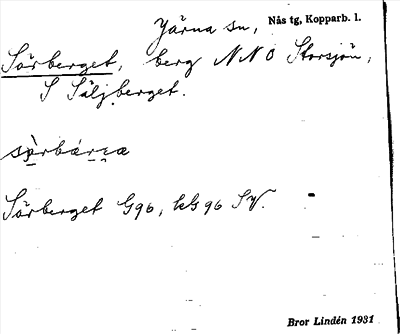 Järna sn, Nås tg, Kopparb. l.
Sörberget, berg NNO Storsjön,
S Säljberget.
Sörberget G96, kG96 SV.
Bror Lindén 1931